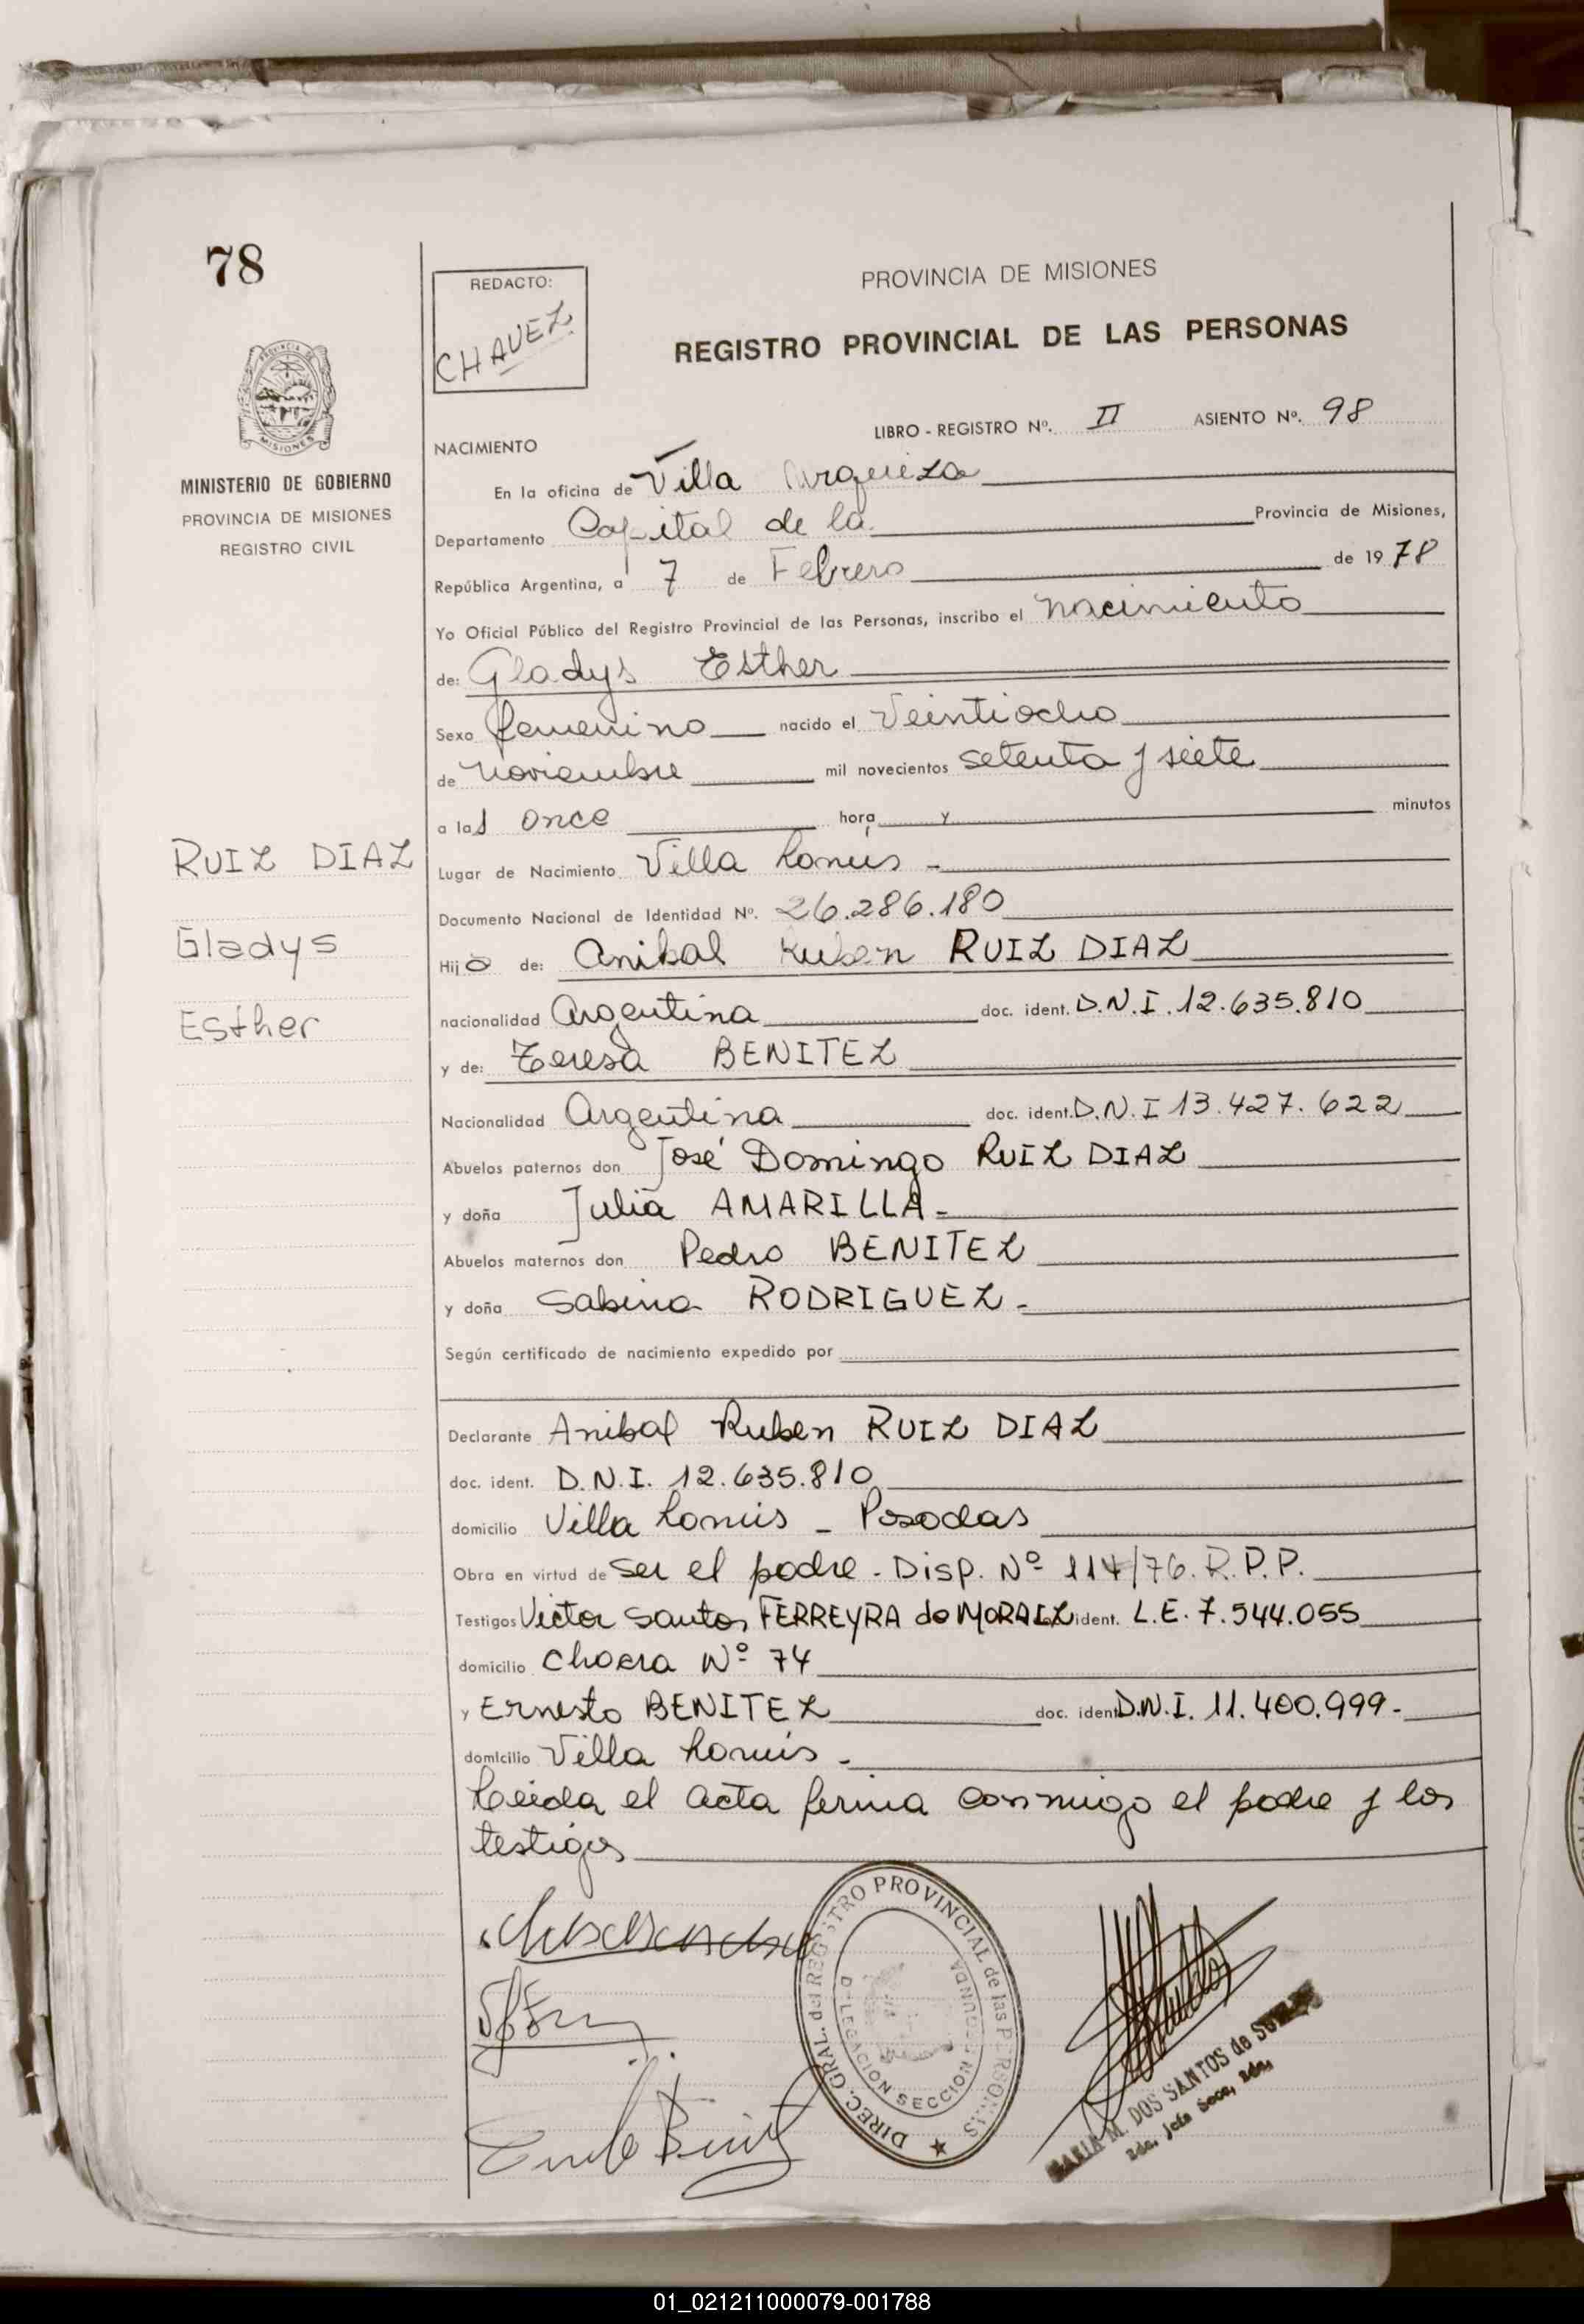 78
REDACTO:
CHAVEZ
PROVINCIA DE MISIONES
REGISTRO PROVINCIAL DE LAS PERSONAS
PROVINCIA DE MISIONES
MINISTERIO DE GOBIERNO
PROVINCIA DE MISIONES
REGISTRO CIVIL
RUIZ DIAZ
Gladys
Esther
LIBRO - REGISTRO Nº. II ASIENTO Nº. 98
NACIMIENTO
En la oficina de Villa Urquiza
Departamento Capital de la Provincia de Misiones,
República Argentina, a 7 de Febrero de 1978
Yo Oficial Público del Registro Provincial de las Personas, inscribo el nacimiento
de: Gladys Esther
Sexo femenino nacido el Veintiocho
de noviembre mil novecientos setenta y siete
a las once hora y minutos
Lugar de Nacimiento Villa Lanus -
Documento Nacional de Identidad Nº. 26.286.180
Hija de: Anibal Ruben RUIZ DIAZ
nacionalidad Argentina doc. ident. D.N.I. 12.635.810
y de: Teresa BENITEZ
Nacionalidad Argentina doc. ident. D.N.I 13.427.622
Abuelos paternos don José Domingo RUIZ DIAZ
y doña Julia AMARILLA -
Abuelos maternos don Pedro BENITEZ
y doña Sabina RODRIGUEZ -
Según certificado de nacimiento expedido por
Declarante Anibal Ruben RUIZ DIAZ
doc. ident. D.N.I. 12.635.810
domicilio Villa Lanus - Posadas
Obra en virtud de ser el padre - Disp. Nº 114/76. R.P.P.
Testigos Victor Santos FERREYRA do MORAEZ ident. L.E. 7.544.055
domicilio Chacra Nº 74
y Ernesto BENITEZ doc. ident D.N.I. 11.400.999 -
domicilio Villa Lanus -
Leida el acta firma conmigo el padre y los
testigos
DIREC. GRAL. del REGISTRO PROVINCIAL de las PERSONAS
DELEGACION SECCION SEGUNDA
MARIA M. DOS SANTOS de
2da. Jefe Secc. 2da.
01_021211000079-001788